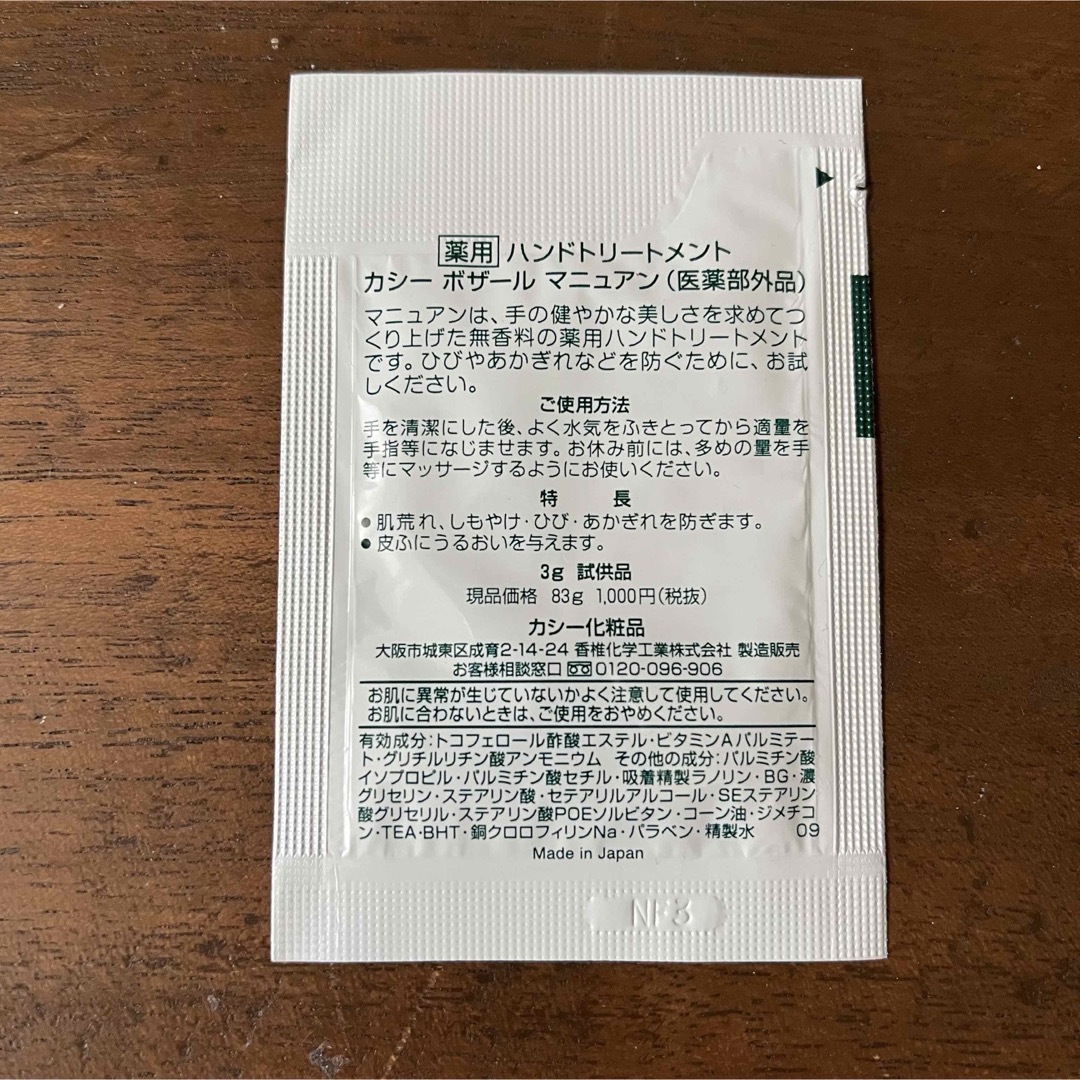 薬用 ハンドトリートメント
カシー ボザール マニュアン（医薬部外品）
マニュアンは、手の健やかな美しさを求めてつ
くり上げた無香料の薬用ハンドトリートメント
です。ひびやあかぎれなどを防ぐために、お試
しください。
ご使用方法
手を清潔にした後、よく水気をふきとってから適量を
手指等になじませます。お休み前には、多めの量を手
等にマッサージするようにお使いください。
特 長
●肌荒れ、しもやけ・ひび・あかぎれを防ぎます。
●皮ふにうるおいを与えます。
3g 試供品
現品価格 83g 1,000円（税抜）
カシー化粧品
大阪市城東区成育2-14-24 香椎化学工業株式会社 製造販売
お客様相談窓口 0120-096-906
お肌に異常が生じていないかよく注意して使用してください。
お肌に合わないときは、ご使用をおやめください。
有効成分：トコフェロール酢酸エステル・ビタミンAパルミテー
ト・グリチルリチン酸アンモニウム その他の成分：パルミチン酸
イソプロピル・パルミチン酸セチル・吸着精製ラノリン・BG・濃
グリセリン・ステアリン酸・セテアリルアルコール・SEステアリン
酸グリセリル・ステアリン酸POEソルビタン・コーン油・ジメチコ
ン・TEA・BHT・銅クロロフィリンNa・パラベン・精製水 09
Made in Japan
NF8